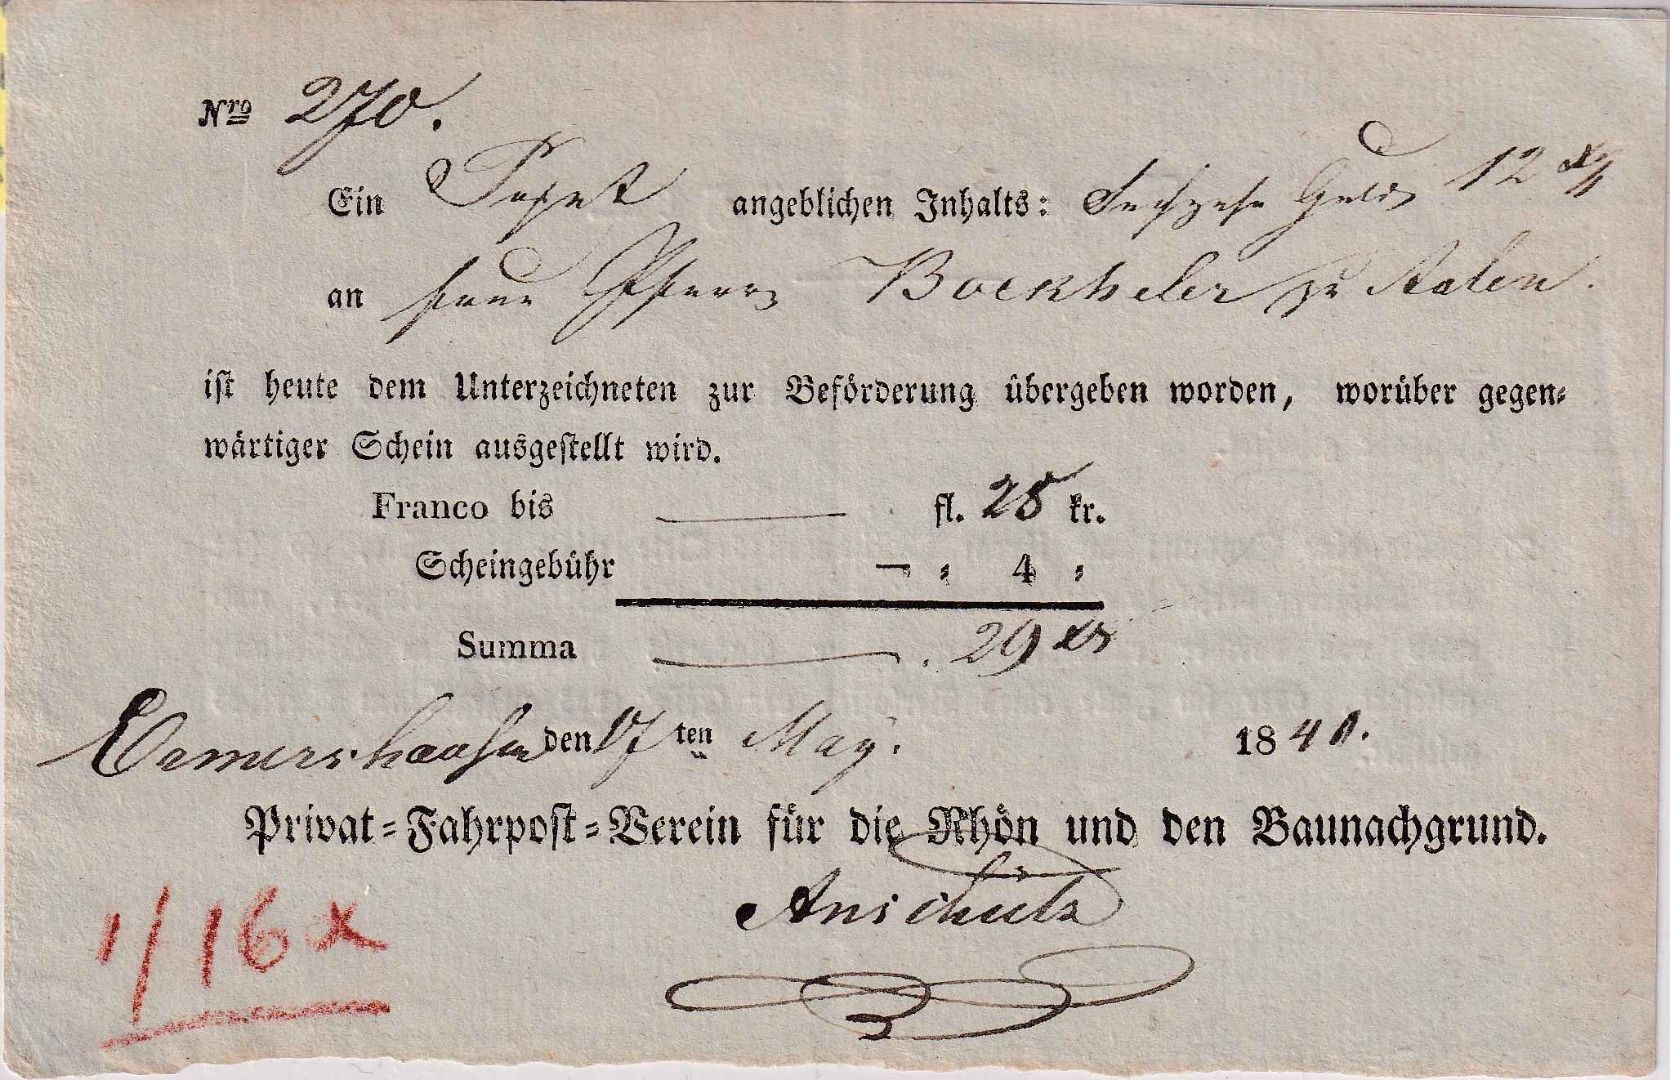 Nro 270.
Ein Paket angeblichen Inhalts: Sechzehn Guld 12 Xr
an Frau Pfarrer Boekheler zu Aalen.
ist heute dem Unterzeichneten zur Beförderung übergeben worden, worüber gegen-
wärtiger Schein ausgestellt wird.
Franco bis — fl. 25 kr.
Scheingebühr — " 4 "
Summa — . 29 Xr
Ermershausen den 17 ten May. 1840.
Privat-Fahrpost-Verein für die Rhön und den Baunachgrund.
Anschütz
1/16 x